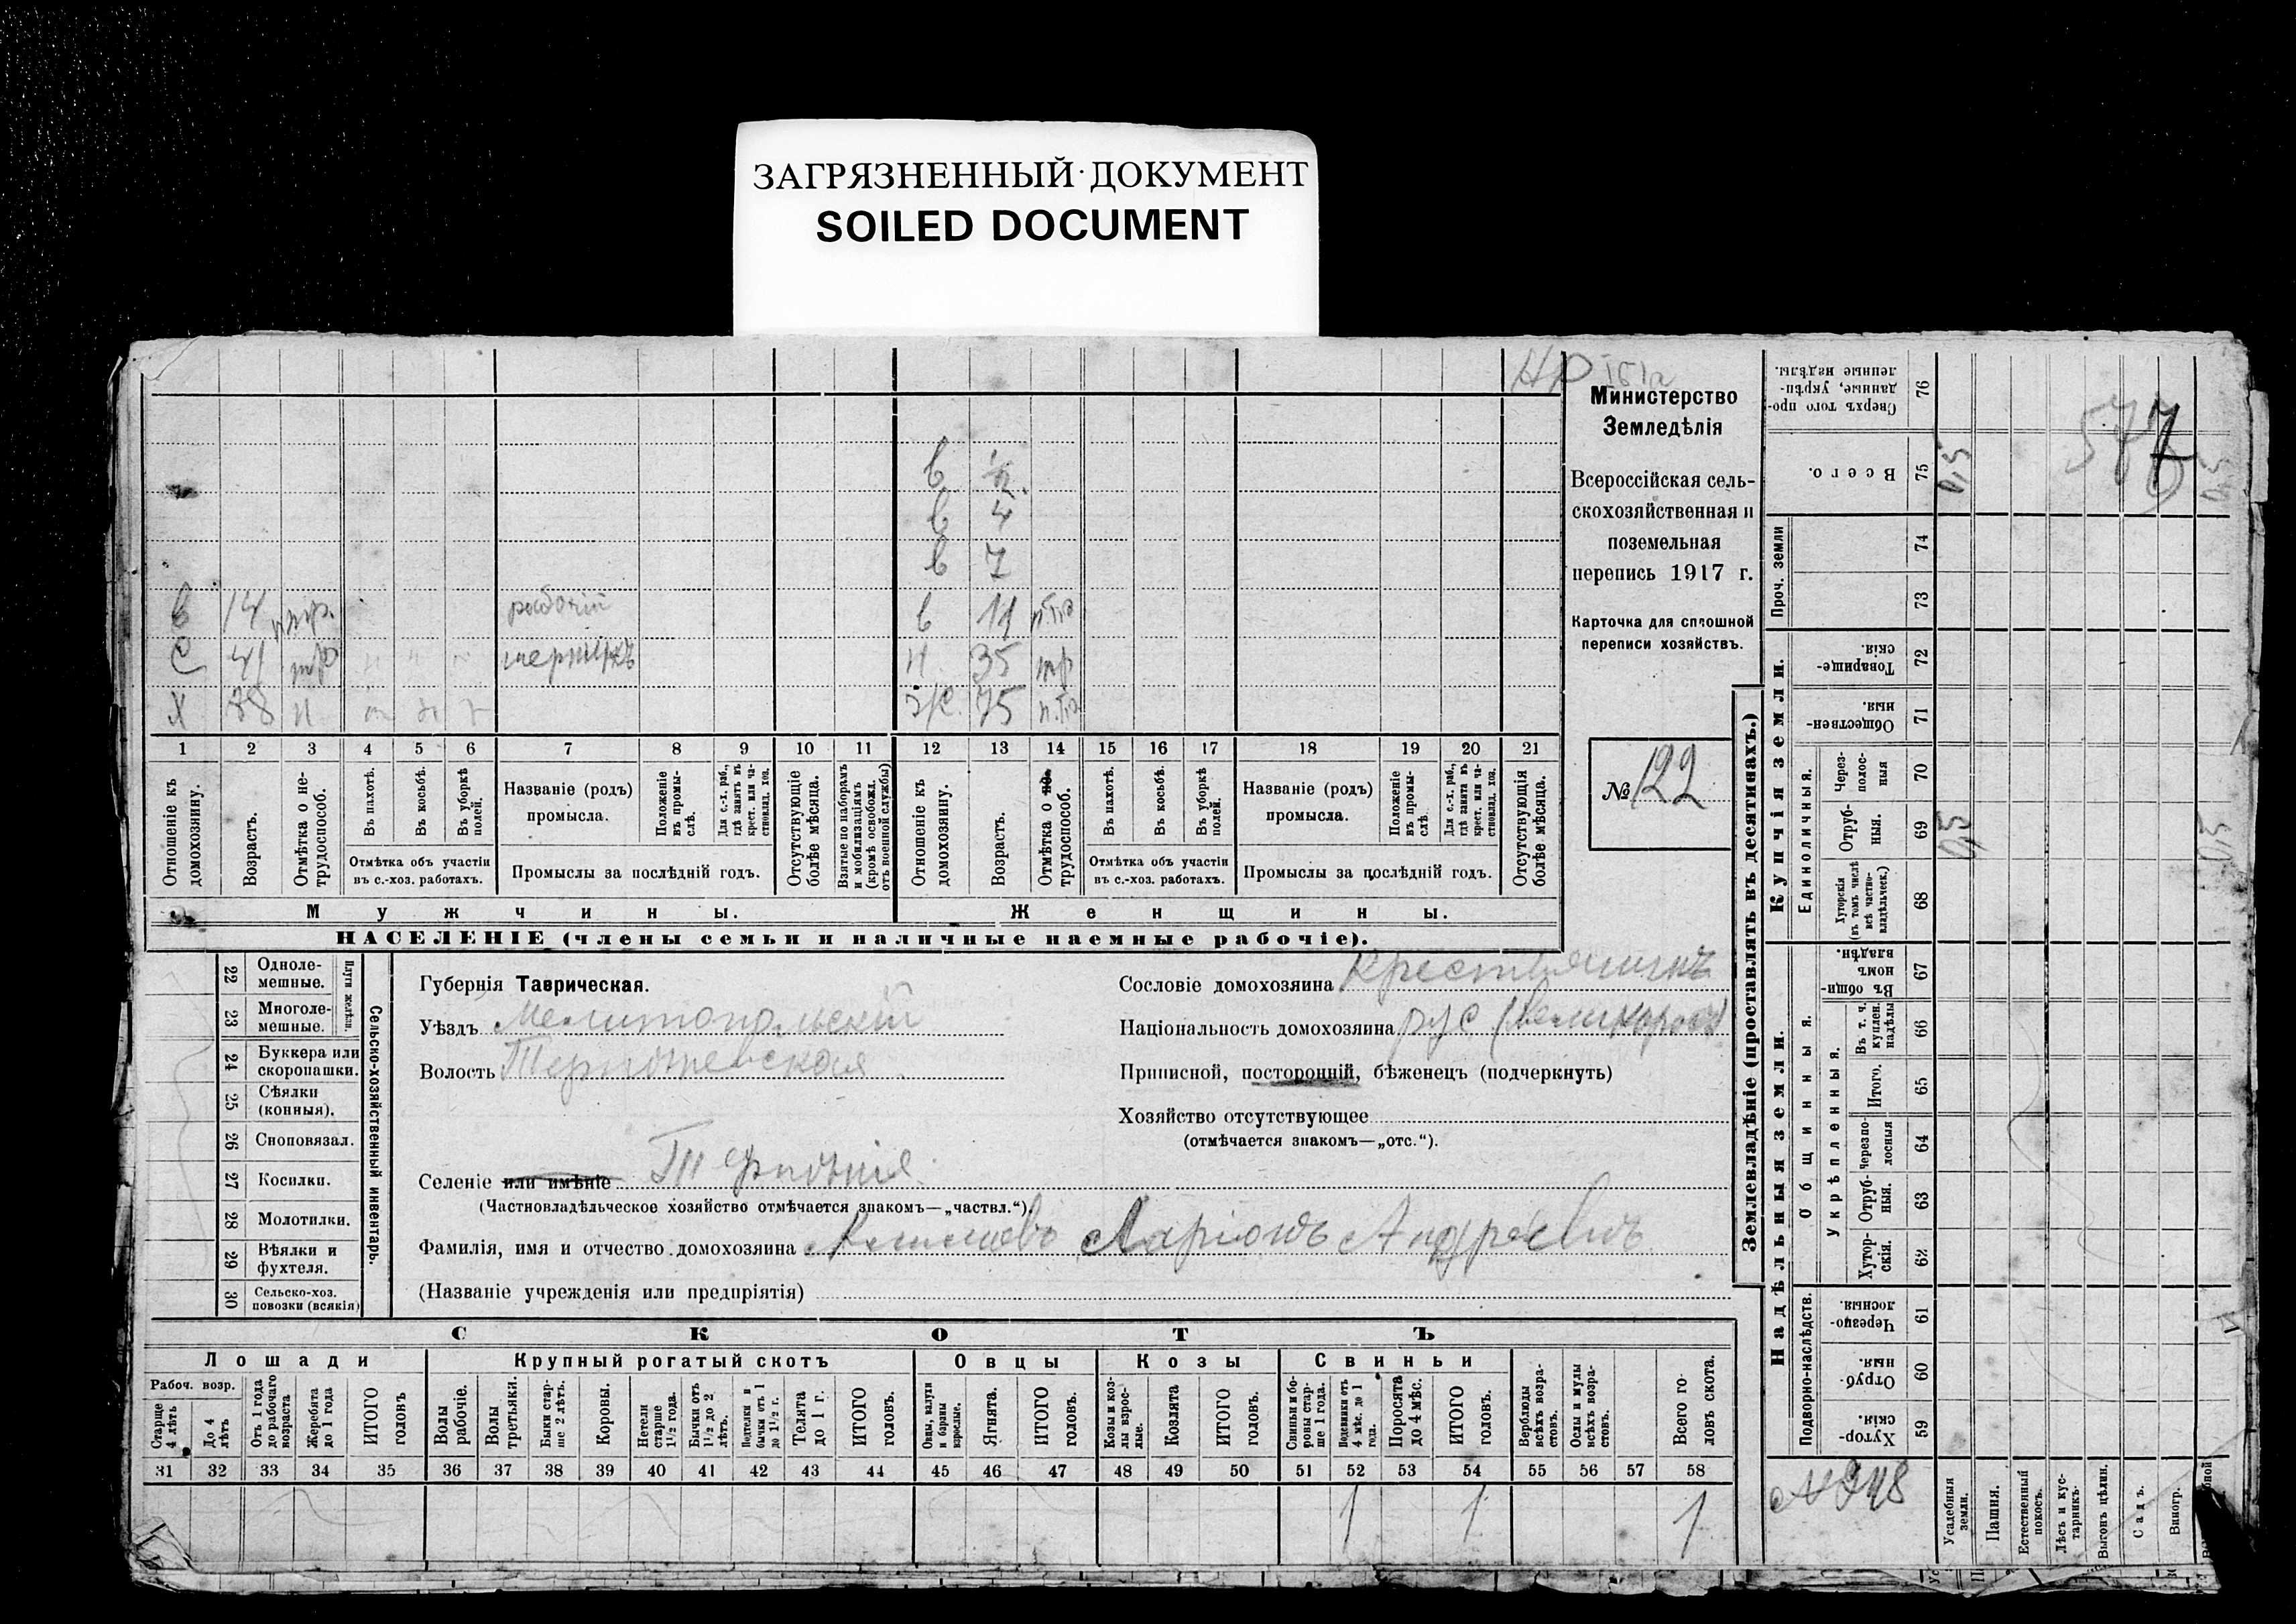 ЗАГРЯЗНЕННЫЙ ДОКУМЕНТ
SOILED DOCUMENT
Министерство
Земледѣлія
Всероссійская сель-
скохозяйственная и
поземельная
перепись 1917 г.
Карточка для сплошной
переписи хозяйствъ.
№ 122
в ½
в 4
в 7
в 14 рабочій в 11
С 41 тр 35 тр
Х 78 н ж. 75
1 2 3 4 5 6 7 8 9 10 11 12 13 14 15 16 17 18 19 20 21
Отношеніе къ домохозяину.
Возрастъ.
Отмѣтка о не-трудоспособ.
Въ пахотѣ.
Въ косьбѣ.
Въ уборкѣ полей.
Отмѣтка объ участіи
въ с.-хоз. работахъ.
Названіе (родъ)
промысла.
Положеніе въ промы-слѣ.
Для с.-х. раб., гдѣ занятъ въ крест. или ча-стновлад. хоз.
Промыслы за послѣдній годъ.
Отсутствующіе болѣе мѣсяца.
Взятые по наборамъ и мобилизаціямъ (кромѣ освобожд. отъ военной службы)
Отношеніе къ домохозяину.
Возрастъ.
Отмѣтка о не-трудоспособ.
Въ пахотѣ.
Въ косьбѣ.
Въ уборкѣ полей.
Отмѣтка объ участіи
въ с.-хоз. работахъ.
Названіе (родъ)
промысла.
Положеніе въ промы-слѣ.
Для с.-х. раб., гдѣ занята въ крест. или ча-стновлад. хоз.
Промыслы за послѣдній годъ.
Отсутствующія болѣе мѣсяца.
Мужчины. Женщины.
НАСЕЛЕНІЕ (члены семьи и наличные наемные рабочіе).
22 Одноле-мешные.
23 Многоле-мешные.
Плуги желѣзн.
24 Буккера или скоропашки.
25 Сѣялки (конныя).
26 Сноповязал.
27 Косилки.
28 Молотилки.
29 Вѣялки и фухтеля.
30 Сельско-хоз. повозки (всякія)
Сельско-хозяйственный инвентарь.
Губернія Таврическая.
Уѣздъ Мелитопольскій
Волость Терпѣньевская
Селеніе или имѣніе Терпѣнія
(Частновладѣльческое хозяйство отмѣчается знакомъ—„частвл.“).
Фамилія, имя и отчество домохозяина Ларіонъ Андреевичъ
(Названіе учрежденія или предпріятія)
Сословіе домохозяина Крестьянинъ
Національность домохозяина рус (великоросс)
Приписной, посторонній, бѣженецъ (подчеркнуть)
Хозяйство отсутствующее
(отмѣчается знакомъ—„отс.“).
СКОТЪ
Лошади Крупный рогатый скотъ Овцы Козы Свиньи
Рабоч. возр.
Старше 4 лѣтъ
До 4 лѣтъ
Отъ 1 года до рабочаго возраста
Жеребята до 1 года
ИТОГО головъ
Волы рабочіе.
Волы третьяки.
Быки стар-ше 2 лѣтъ.
Коровы.
Нетели старше 1½ года.
Бычки отъ 1½ до 2 лѣтъ.
Подтелки и бычки отъ 1 до 1½ г.
Телята до 1 г.
ИТОГО головъ.
Овцы, валухи и бараны взрослые.
Ягнята.
ИТОГО головъ.
Козы и коз-лы взрос-лые.
Козлята
ИТОГО головъ.
Свиньи и бо-ровы стар-ше 1 года.
Подсвинки отъ 4 мѣс. до 1 года.
Поросята до 4 мѣс.
ИТОГО головъ.
Верблюды всѣхъ возра-стовъ.
Ослы и мулы всѣхъ возра-стовъ.
Всего го-ловъ скота.
31 32 33 34 35 36 37 38 39 40 41 42 43 44 45 46 47 48 49 50 51 52 53 54 55 56 57 58
1 1 1
Землевладѣніе (проставлять въ десятинахъ.)
Надѣльныя земли.
Купчія земли.
Проч. земли
Подворно-наслѣдств.
Общинныя.
Укрѣпленныя.
Единоличныя.
Сверхъ того про-данные, укрѣп-ленные надѣлы. 76
Всего. 75 0,5
74
73
Товарище-скія. 72
Обществен-ныя. 71
Через-полос-ныя 70
Отруб-ныя. 69 0,5
Хуторскія (въ томъ числѣ всѣ частно-владѣльческ.) 68
Въ общи-номъ владѣн. 67
Въ т. ч. куплен. надѣлы 66
Итого. 65
Черезпо-лосныя 64
Отруб-ныя. 63
Хутор-скія. 62
Черезпо-лосныя 61
Отруб-ныя. 60
Хутор-скія. 59
Усадебныя земли.
Пашня.
Естественный покосъ.
Лѣсъ и кус-тарникъ.
Выгонъ цѣлин.
Садъ.
Виногр.